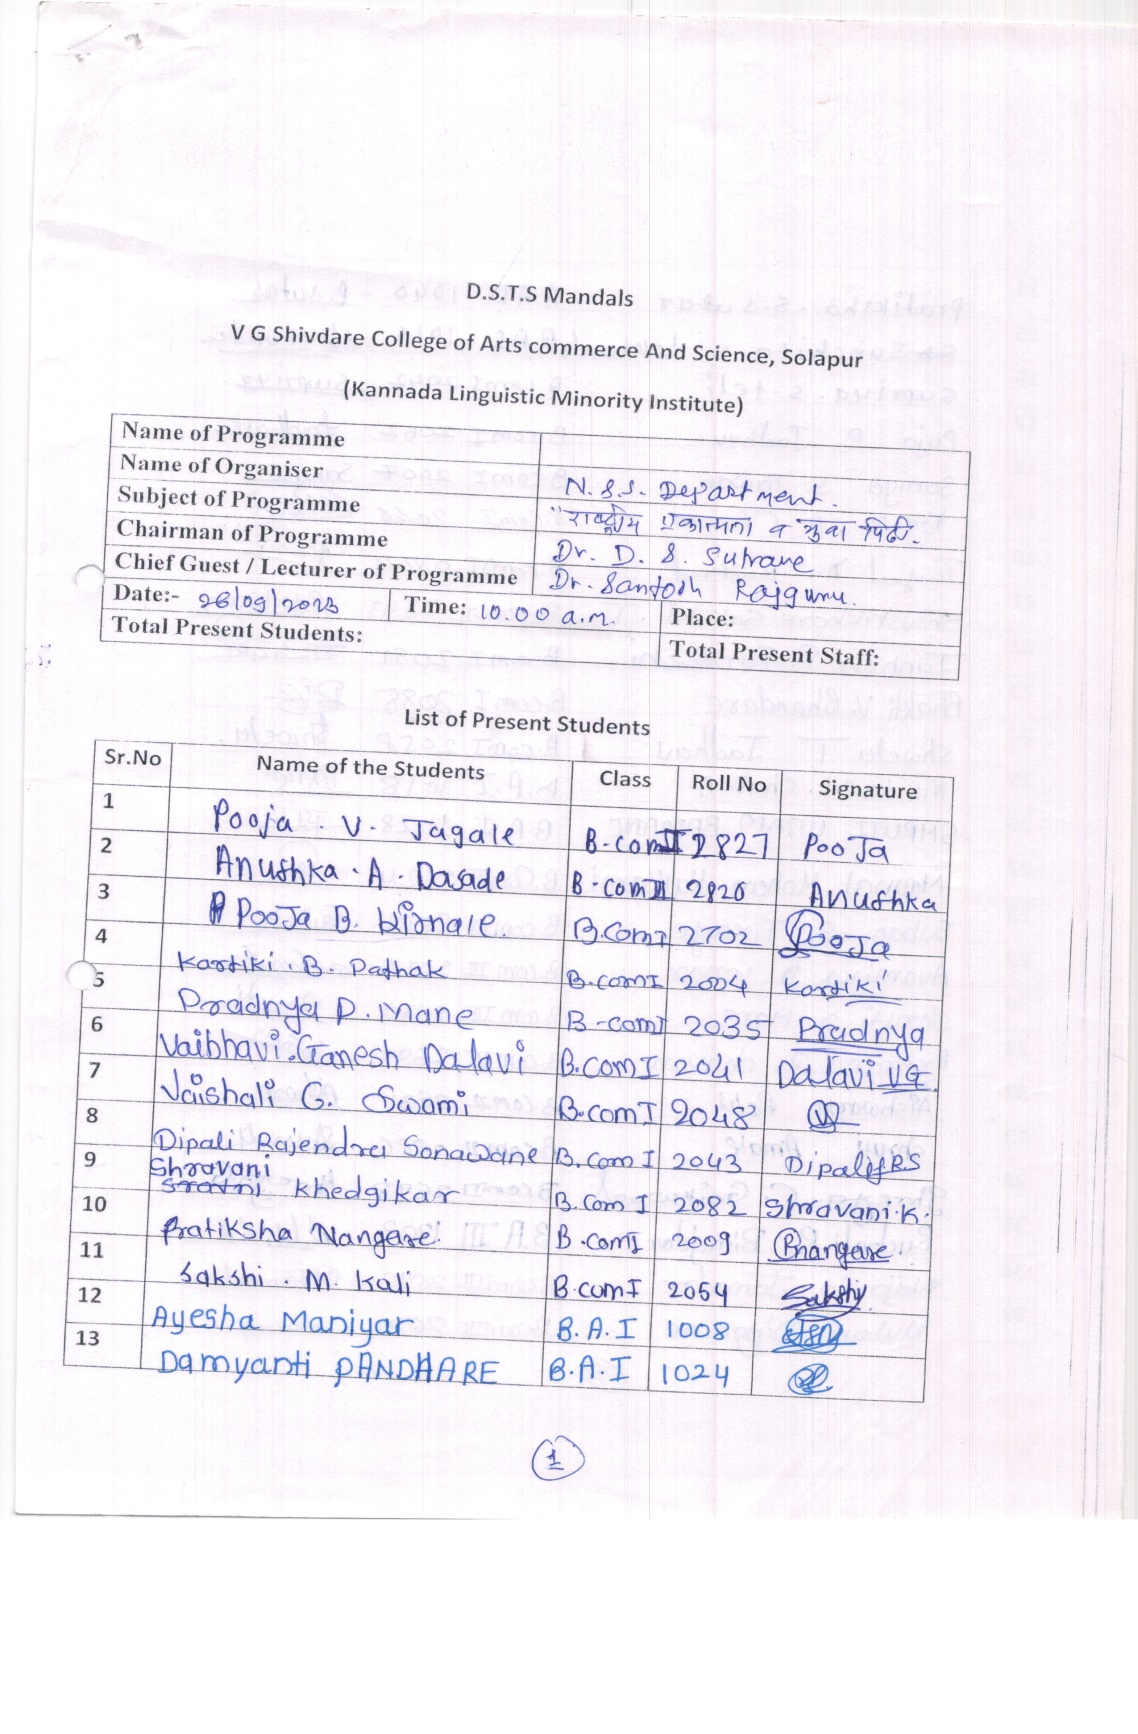 D.S.T.S Mandals
V G Shivdare College of Arts commerce And Science, Solapur
(Kannada Linguistic Minority Institute)
Name of Programme
Name of Organiser N.S.S. Department.
Subject of Programme "राष्ट्रीय एकात्मता व युवा पिढी.
Chairman of Programme Dr. D. S. Sutrave
Chief Guest / Lecturer of Programme Dr. Santosh Rajguru.
Date:- 26/09/2023 Time: 10.00 a.m. Place:
Total Present Students: Total Present Staff:
List of Present Students
Sr.No Name of the Students Class Roll No Signature
1 Pooja V. Jagale B.com II 2827 PooJa
2 Anushka . A . Dasade B.com II 2826 Anushka
3 PooJa B. B.com I 2702 PooJa
4 Kartiki . B. Pathak B.com I 2004 Kartiki
5 Pradnya D. Mane B-com I 2035 Pradnya
6 Vaibhavi . Ganesh Dalavi B.com I 2041 Dalavi VG
7 Vaishali G. Swami B.com I 2048
8 Dipali Rajendra Sonawane B.com I 2043 Dipali RS
9 Shravani Khedgikar B.com I 2082 Shravani.K.
10 Pratiksha Nangare. B.com I 2009 Pnangare
11 Sakshi . M. Kali B.com I 2054 Sakshi
12 Ayesha Maniyar B.A.I 1008
13 Damyanti PANDHARE B.A.I 1024
1